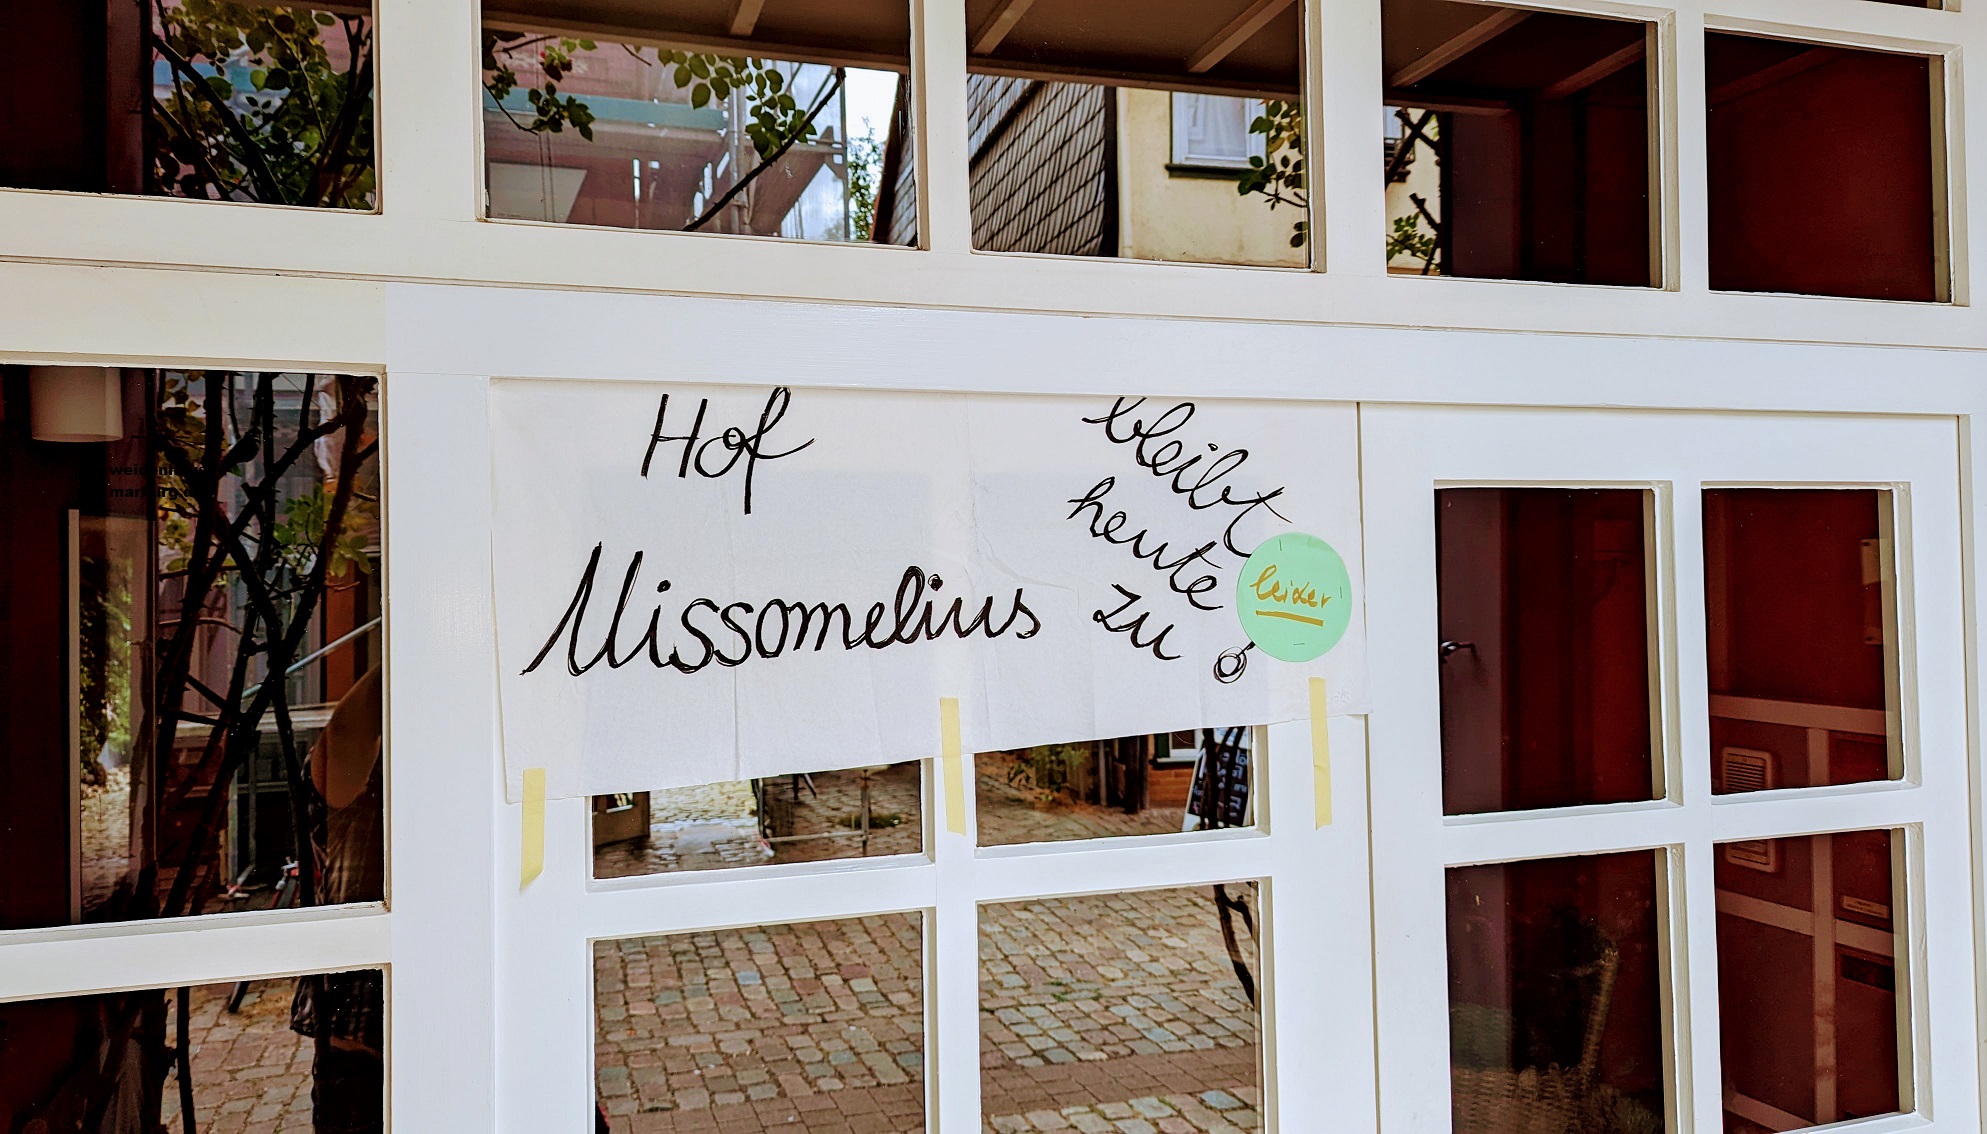 Hof
Missomelius
bleibt
heute
zu!
leider